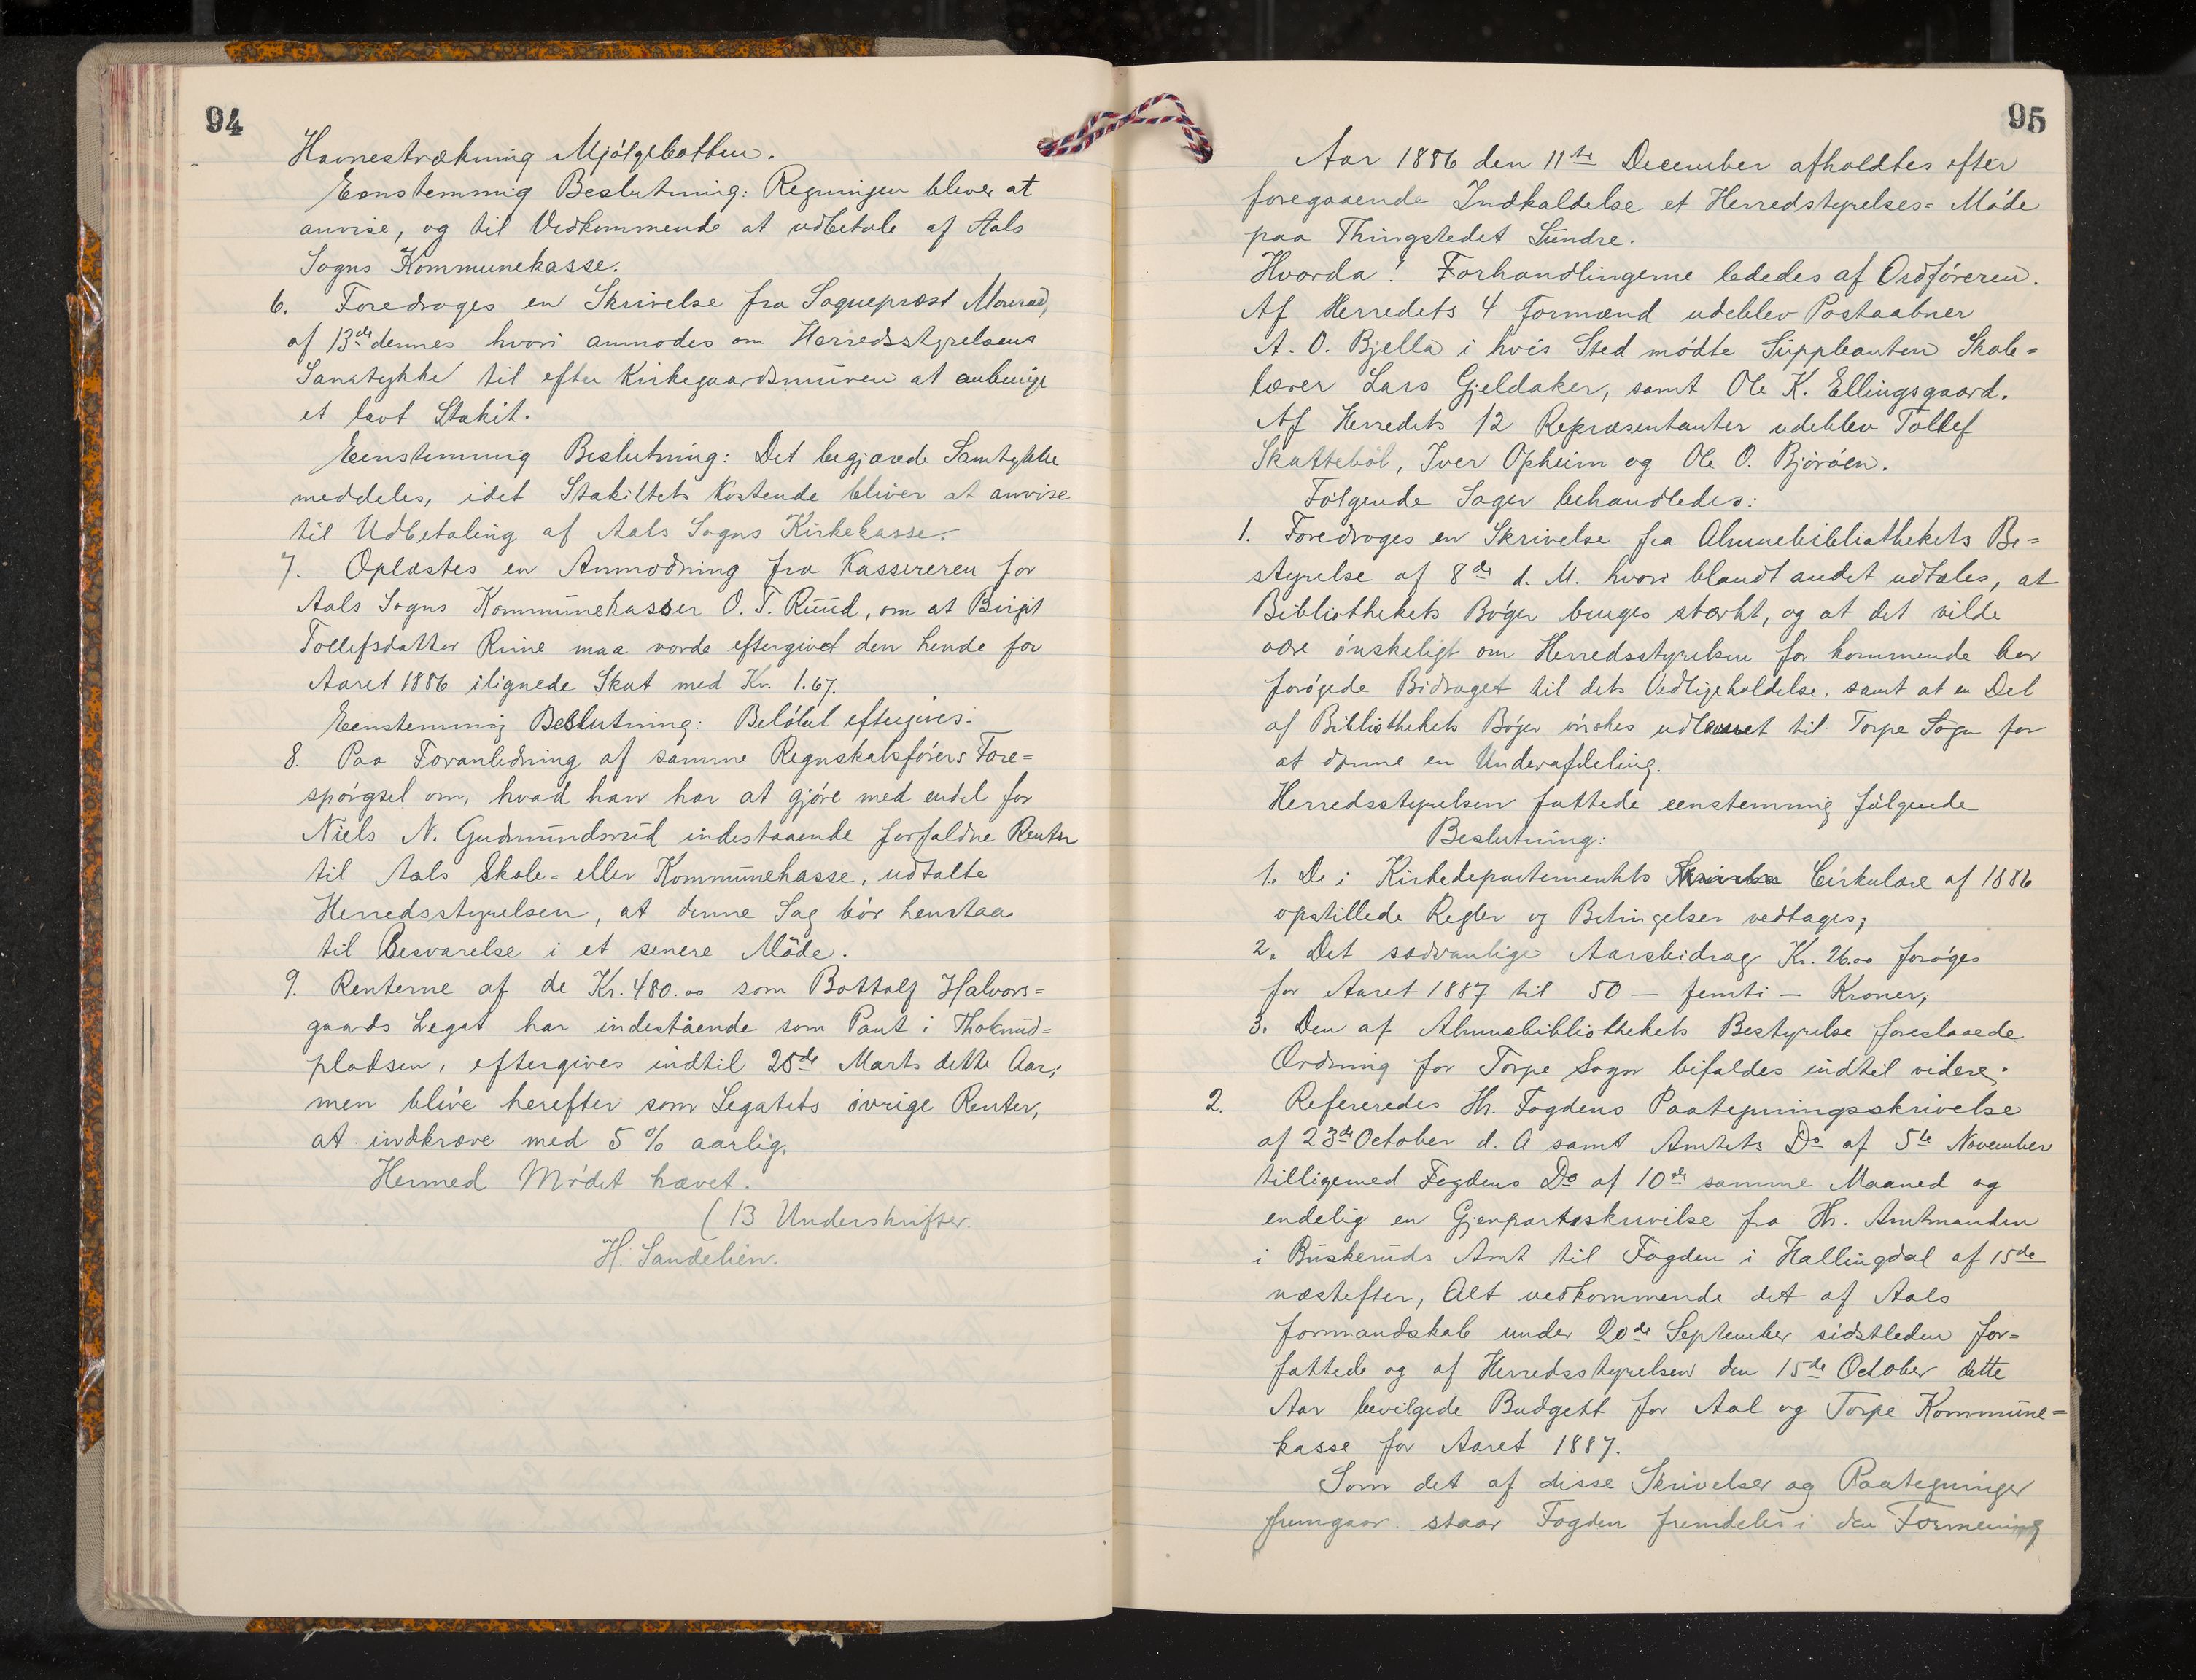 94
Havnestrækning Mjölgebotten.
Eenstemmig Beslutning: Regningen bliver at
anvise, og til Vedkommende at udbetale af Aals
Sogns Kommunekasse.
6. Foredroges en Skrivelse fra Sogneprest
af 13de dennes hvori anmodes om Herredsstyrelsens
Samtykke til efter Kirkegaardsmuren at anbringe
et lavt Stakit.
Eenstemmig Beslutning: Det begjærede Samtykke
meddeles, idet Stakittets Kostende bliver at anvise
til Udbetaling af Aals Sogns Kirkekasse.
7. Oplæstes en Anmodning fra Kassereren for
Aals Sogns Kommunekasser O. T. Ruud, om at Birgit
Tollefsdatter Rime maa vorde eftergivet den hende for
Aaret 1886 ilignede Skat med Kr. 1.67.
Eenstemmig Beslutning: Belöbet eftergives.
8. Paa Foranledning af samme Regnskabsförers Fore=
spörgsel om, hvad han har at gjöre med endel for
Niels N. Gudmundsrud indestaaende forfaldne Renter
til Aals Skole- eller Kommunekasse, udtalte
Herredsstyrelsen, at denne Sag bör henstaa
til Besvarelse i et senere Möde.
9. Renterne af de Kr. 480.00 som Bottolf Halvors=
gaards Legat har indestående som Pant i Thoknud=
pladsen, eftergives indtil 25de Marts dette Aar;
men blive herefter som Legatets övrige Renter,
at indkræve med 5 % aarlig.
Hermed Mödet hævet.
(13 Underskrifter.
H. Sandelien.
95
Aar 1886 den 11te December afholdtes efter
foregaaende Indkaldelse et Herredstyrelses= Möde
paa Thingstedet Sundre.
Hvorda! Forhandlingerne lededes af Ordföreren.
Af Herredets 4 Formænd udeblev Postaabner
A. O. Bjella i hvis Sted mödte Suppleanten Skole=
lærer Lars Gjeldaker, samt Ole K. Ellingsgaard.
Af Herredets 12 Repræsentanter udeblev Tollef
Skatteböl, Iver Opheim og Ole O. Björöen.
Fölgende Sager behandledes:
1. Foredroges en Skrivelse fra Almuebibliothekets Be=
styrelse af 8de d. M. hvori blandt andet udtales, at
Bibliothekets Böger bruges stærkt, og at det vilde
være önskeligt om Herredsstyrelsen for kommende Aar
forögede Bidraget til dets Vedligeholdelse, samt at en Del
af Bibliothekets Böger önskes udlaanet til Torpe Sogn for
at danne en Underafdeling.
Herredsstyrelsen fattede eenstemmig fölgende
Beslutning:
1. De i Kirkedepartementets Skrivelse Cirkulære af 1886
opstillede Regler og Betingelser vedtages;
2. Det sædvanlige Aarsbidrag Kr. 26.00 foröges
for Aaret 1887 til 50 — femti — Kroner;
3. Den af Almuebibliothekets Bestyrelse foreslaaede
Ordning for Torpe Sogn bifaldes indtil videre.
2. Refereredes Hr. Fogdens Paategningsskrivelse
af 23de October d. A samt Amtets Do af 5te November
tilligemed Fogdens Do af 10de samme Maaned og
endelig en Gjenpartsskrivelse fra Hr. Amtmanden
i Buskeruds Amt til Fogden i Hallingdal af 15de
næstefter, Alt vedkommende det af Aals
formandskab under 20de September sidstleden for=
fattede og af Herredsstyrelsen den 15de October dette
Aar bevilgede Budgett for Aal og Torpe Kommune=
kasse for Aaret 1887.
Som det af disse Skrivelser og Paategninger
fremgaar staar Fogden fremdeles i den Formening